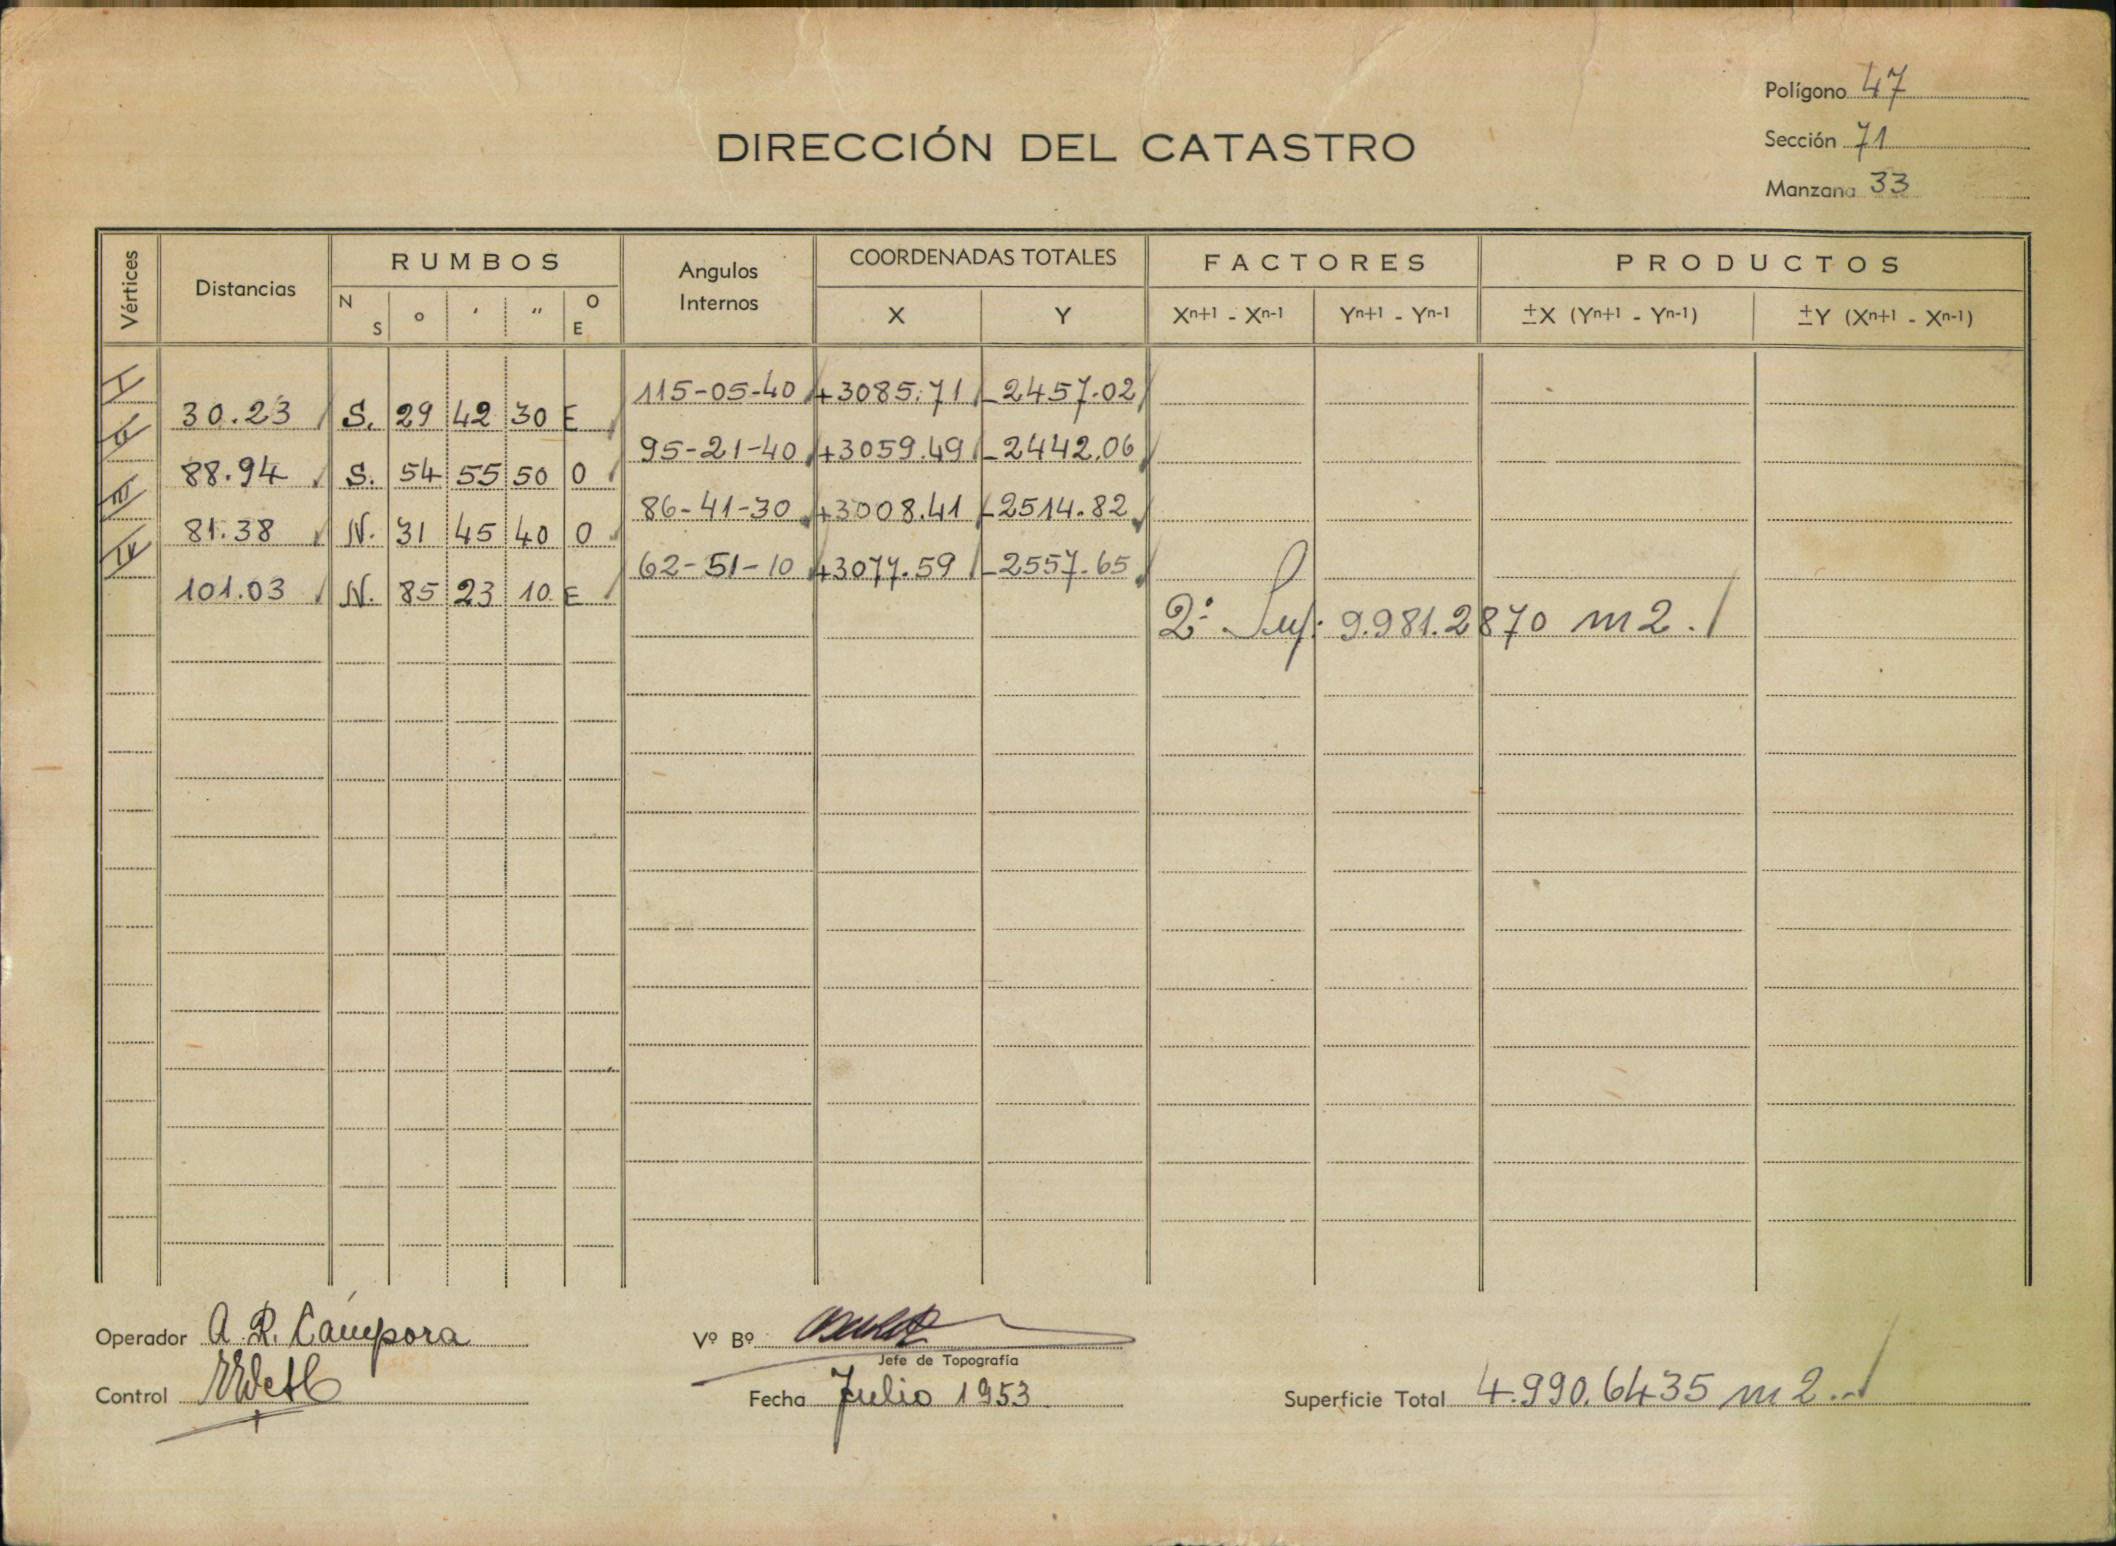 Polígono 47
DIRECCIÓN DEL CATASTRO
Sección 71
Manzana 33
Vértices Distancias RUMBOS Angulos Internos COORDENADAS TOTALES FACTORES PRODUCTOS
N S o ' " O E X Y Xⁿ⁺¹ - Xⁿ⁻¹ Yⁿ⁺¹ - Yⁿ⁻¹ ±X (Yⁿ⁺¹ - Yⁿ⁻¹) ±Y (Xⁿ⁺¹ - Xⁿ⁻¹)
I 115-05-40 +3085.71 -2457.02
30.23 S. 29 42 30 E
II 95-21-40 +3059.49 -2442.06
88.94 S. 54 55 50 O
III 86-41-30 +3008.41 -2514.82
81.38 N. 31 45 40 O
IV 62-51-10 +3077.59 -2557.65
101.03 N. 85 23 10 E
2. Sup. 9.981.2870 m2.
Operador A. R. Cámpora Vº Bº
Jefe de Topografía
Control Fecha Julio 1953 Superficie Total 4.990.6435 m2.